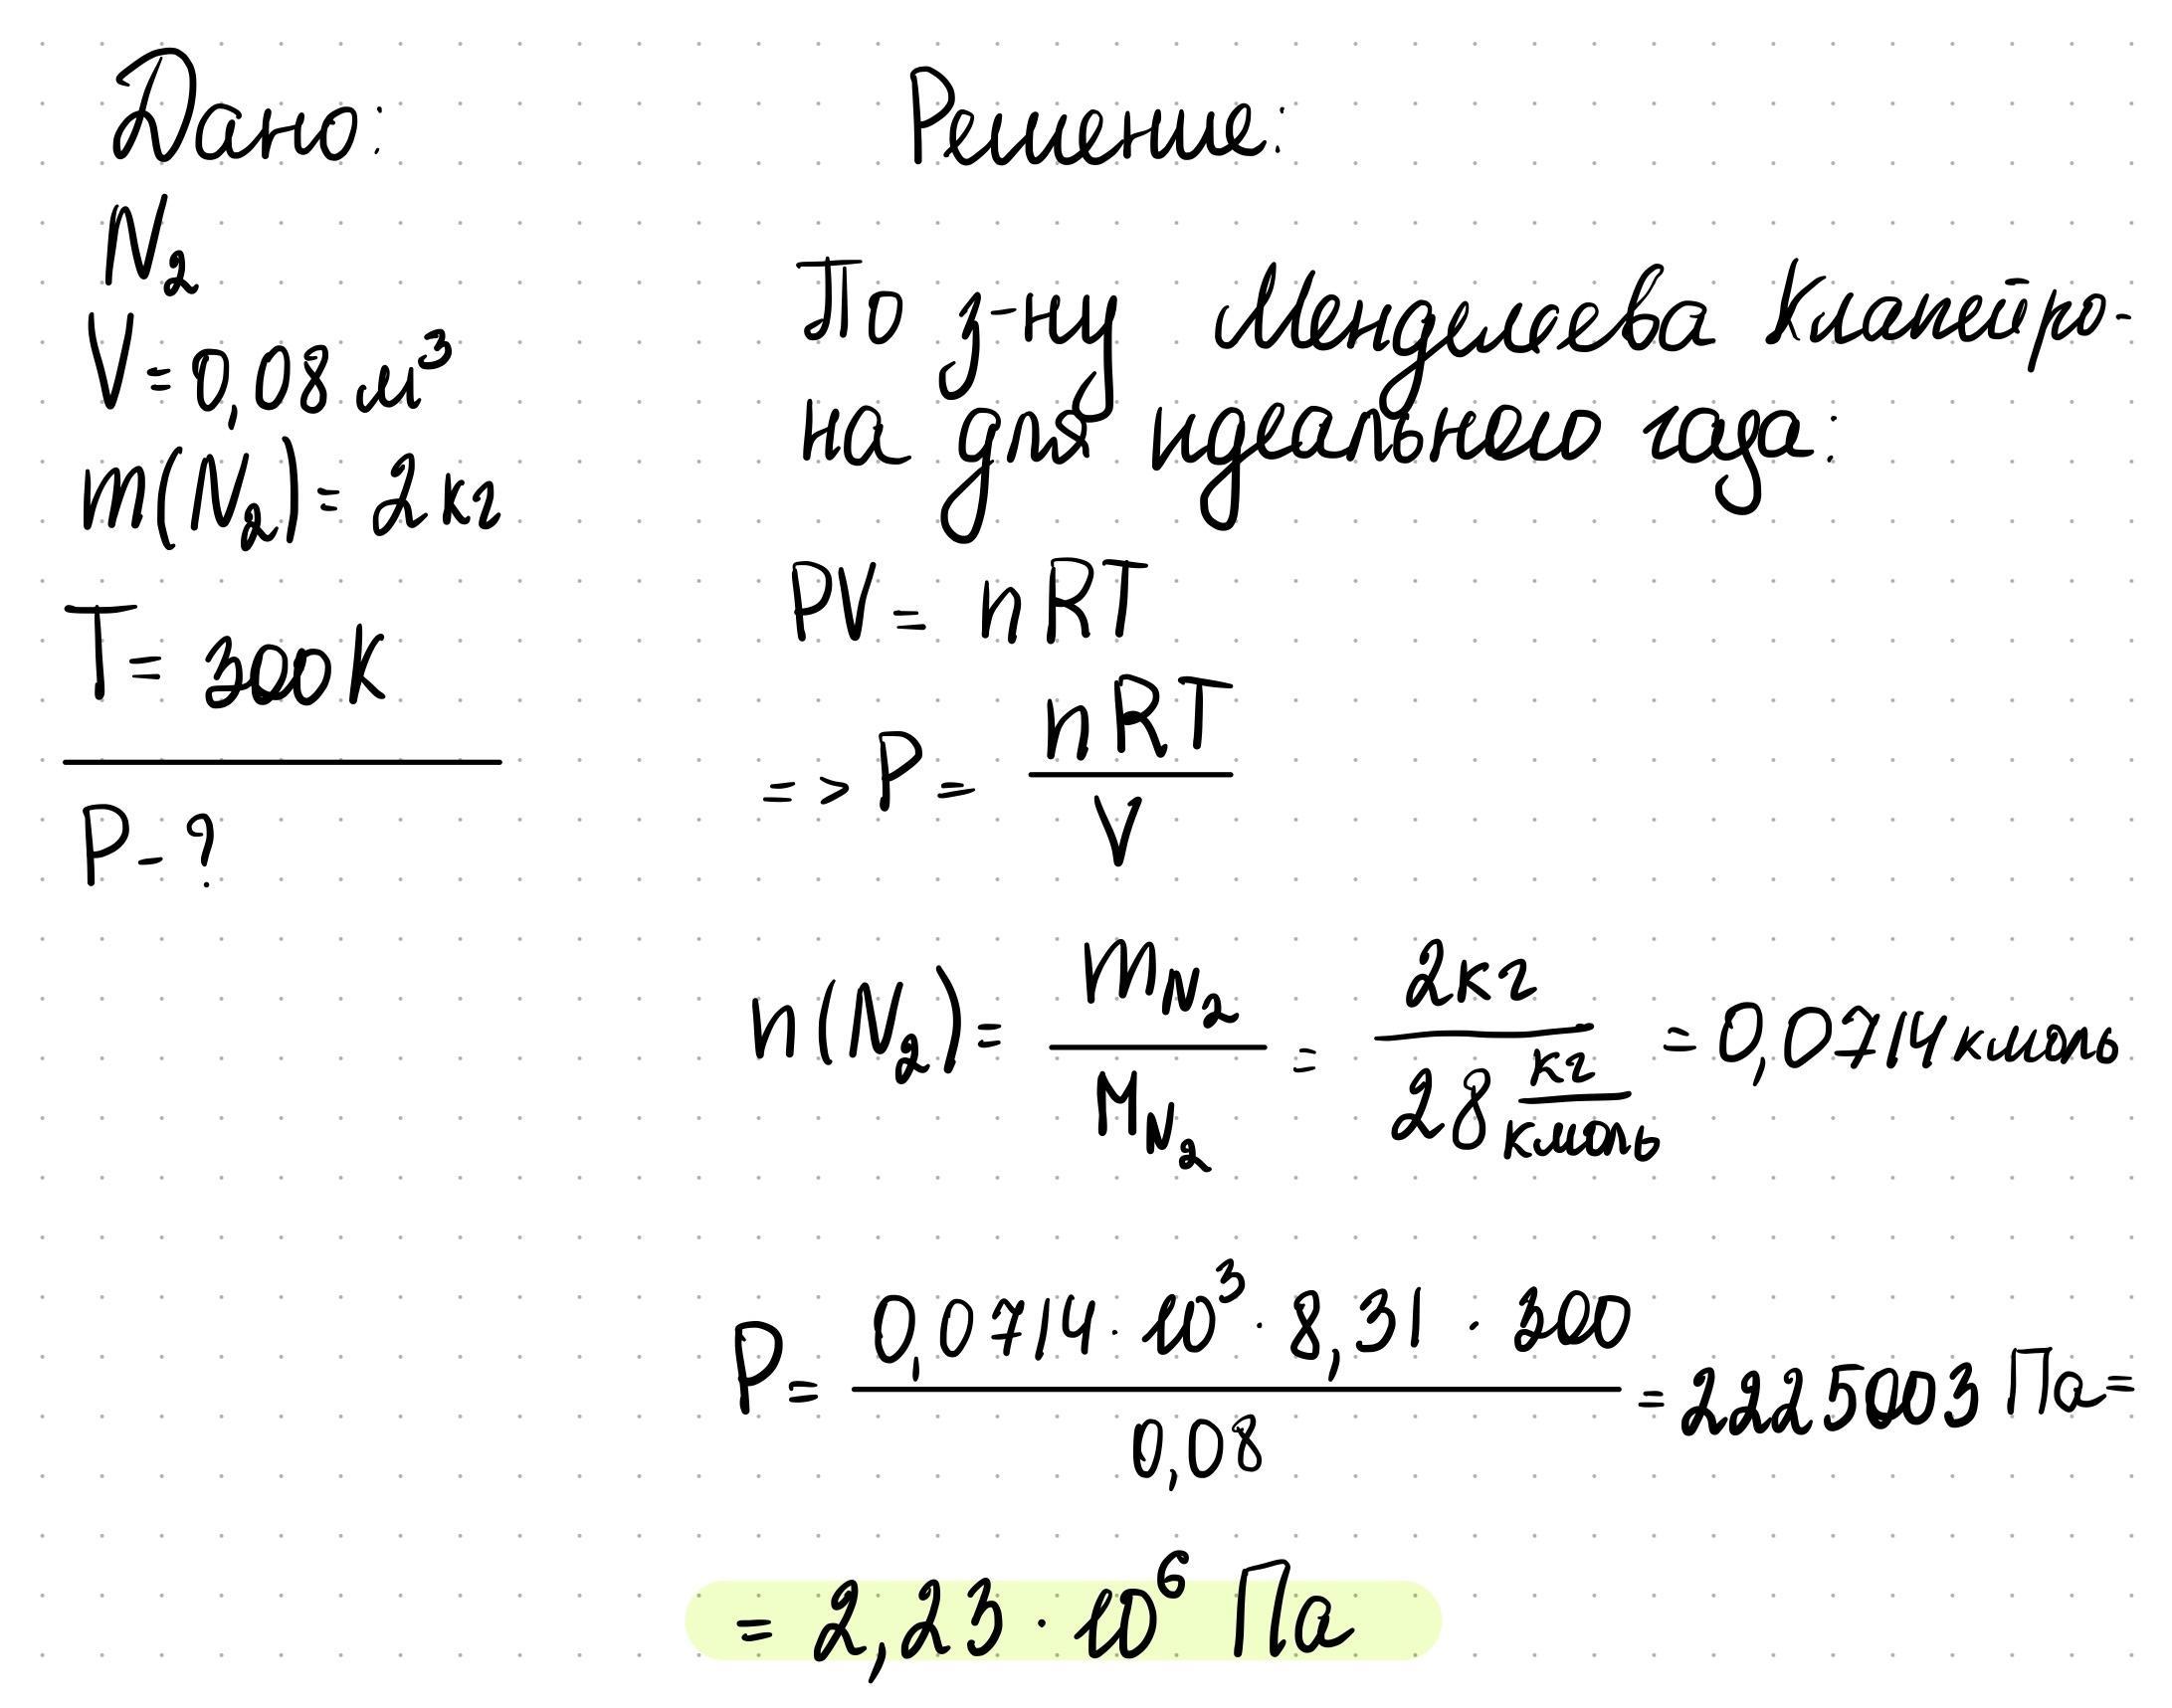 Дано:
N₂
V = 0,08 м³
m(N₂) = 2 кг
T = 300 К
P - ?
Решение:
По з-ну Менделеева Клапейро-
на для идеального газа:
PV = nRT
=> P = nRT / V
n(N₂) = m_N₂ / M_N₂ = 2кг / 28 кг/кмоль = 0,0714 кмоль
P = 0,0714 · 10³ · 8,31 · 300 / 0,08 = 2225003 Па =
= 2,23 · 10⁶ Па